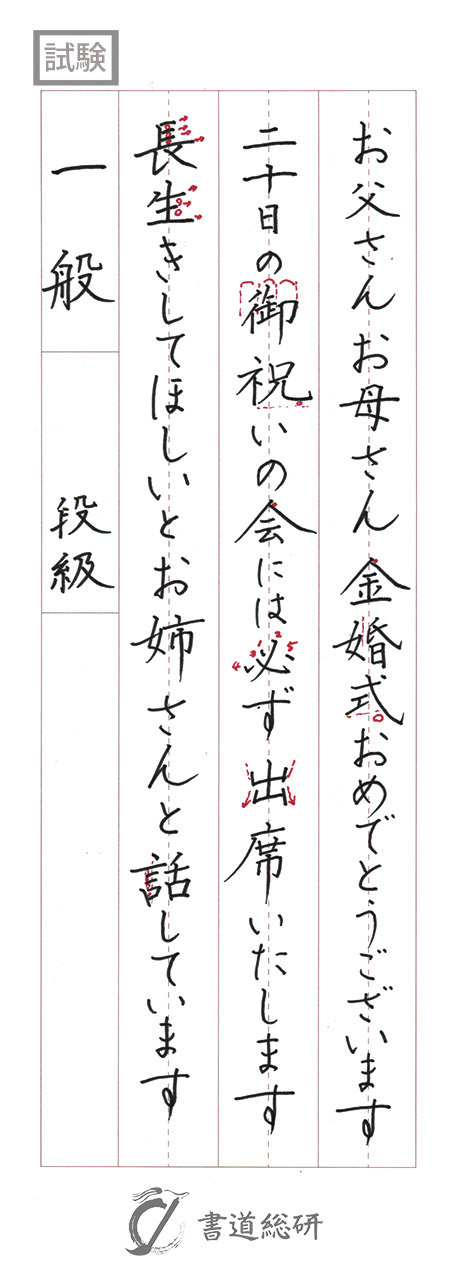 試験
お父さんお母さん金婚式おめでとうございます
二十日の御祝いの会には必ず出席いたします
長生きしてほしいとお姉さんと話しています
一般
段級
書道総研